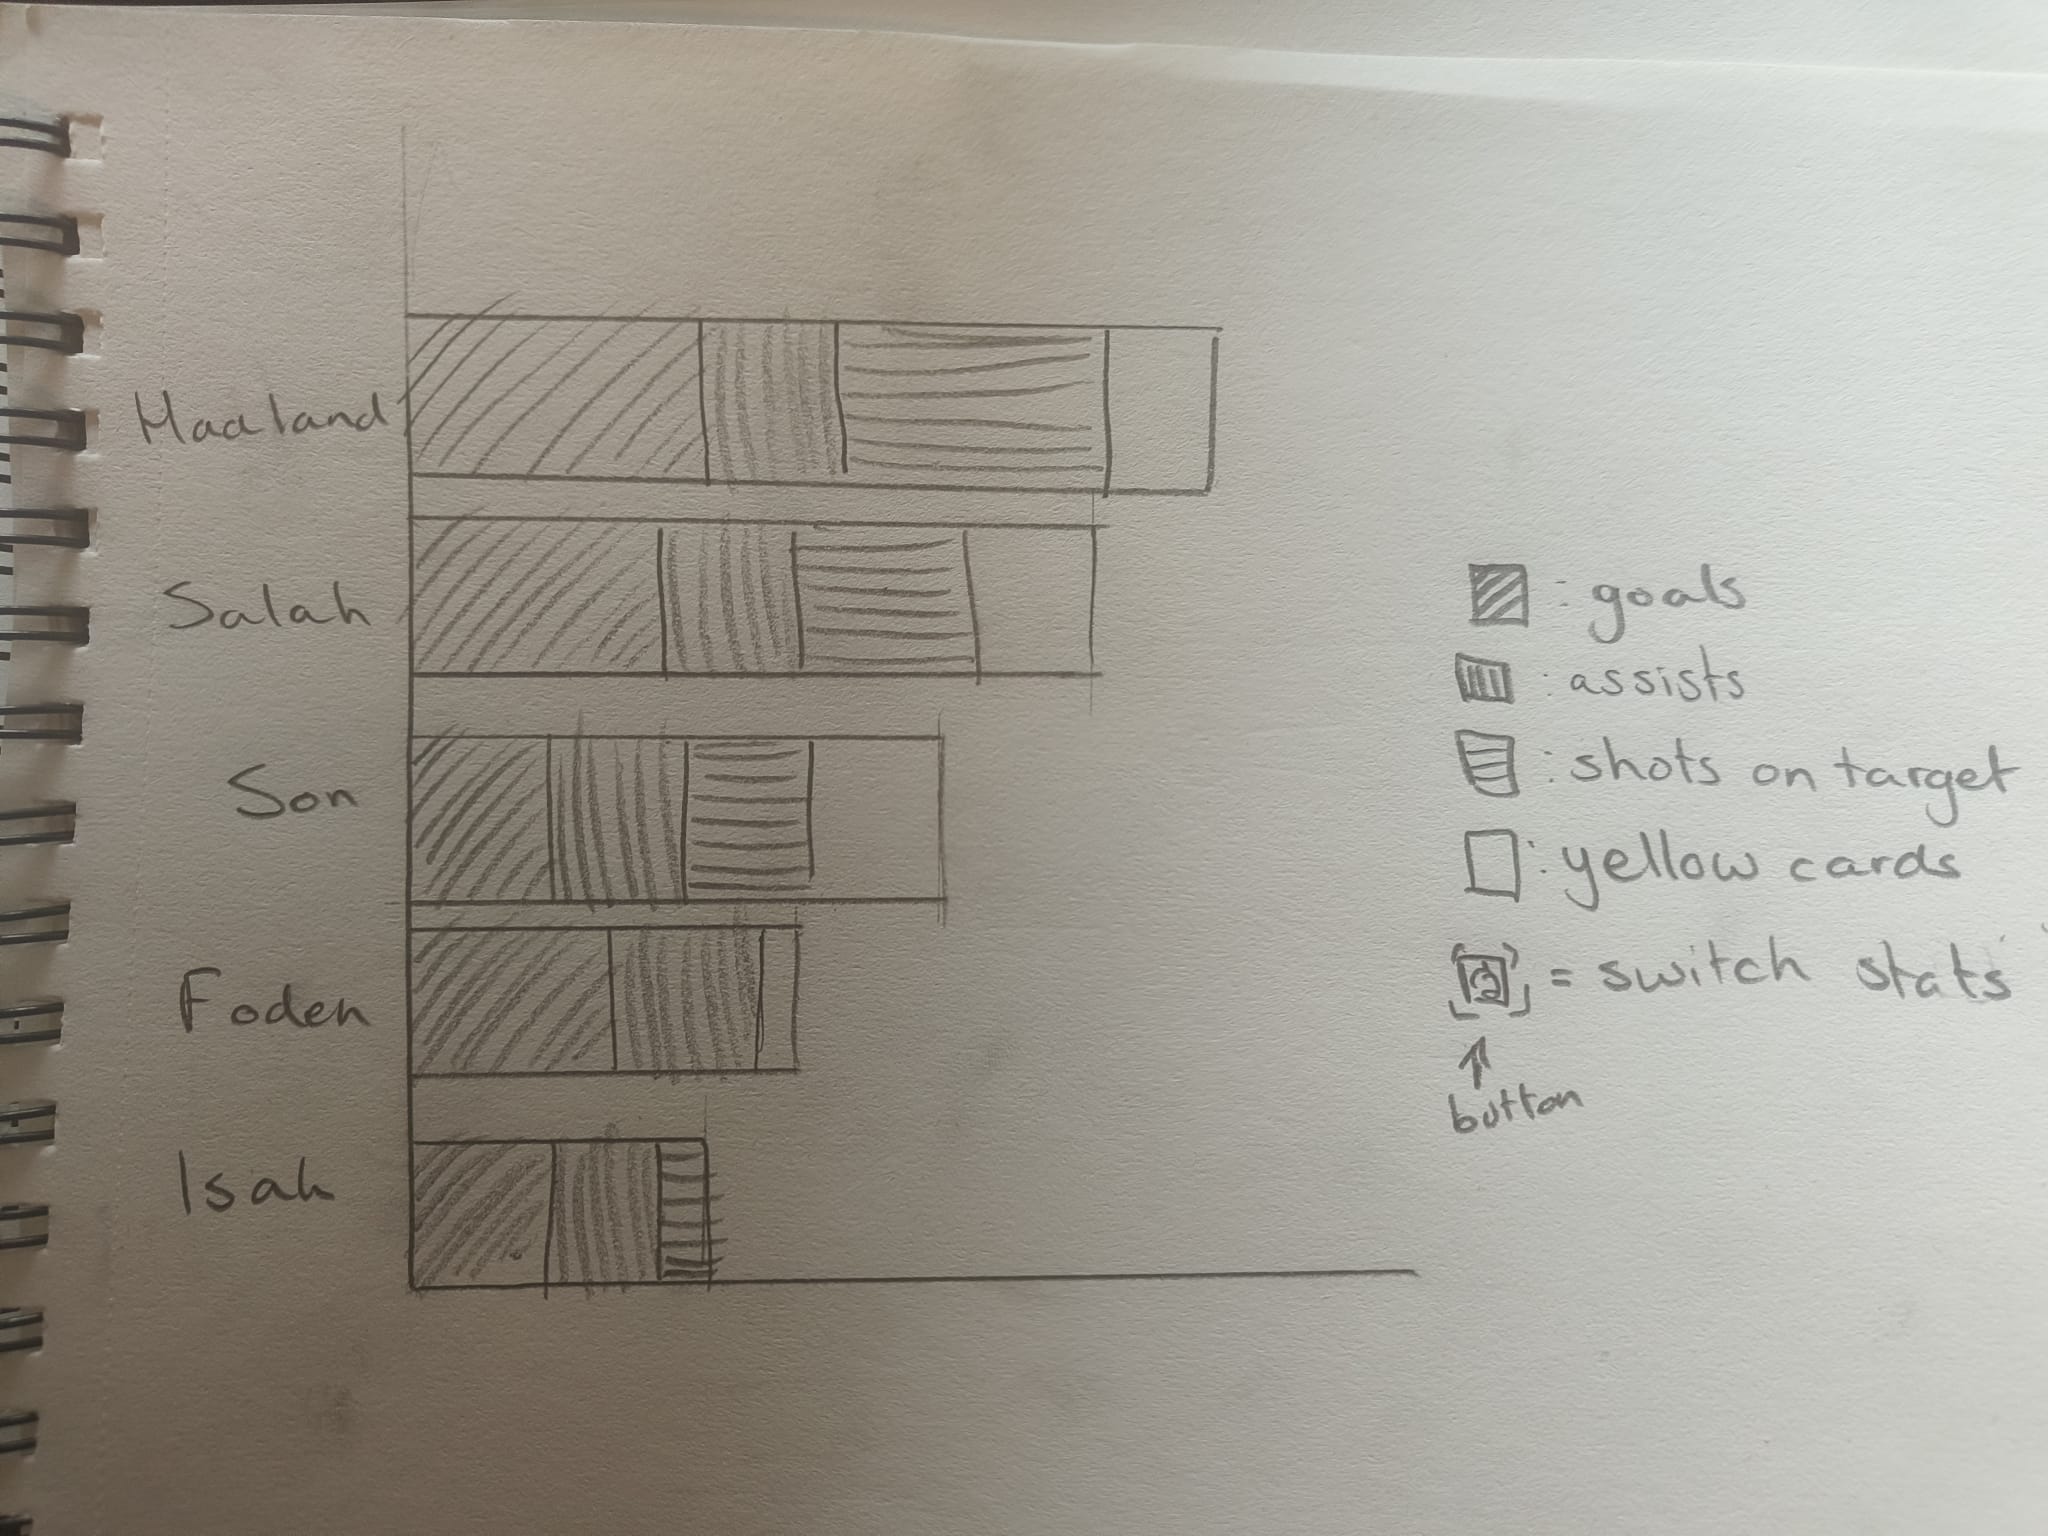 Haaland
Salah
Son
Foden
Isak
: goals
: assists
: shots on target
: yellow cards
= switch stats
button